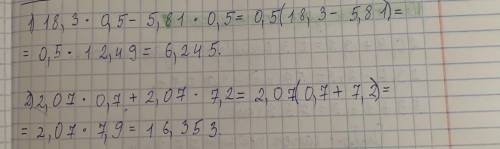 1) 18,3 · 0,5 - 5,81 · 0,5 = 0,5(18,3 - 5,81) =
= 0,5 · 12,49 = 6,245.
2) 2,07 · 0,7 + 2,07 · 7,2 = 2,07(0,7 + 7,2) =
= 2,07 · 7,9 = 16,353.